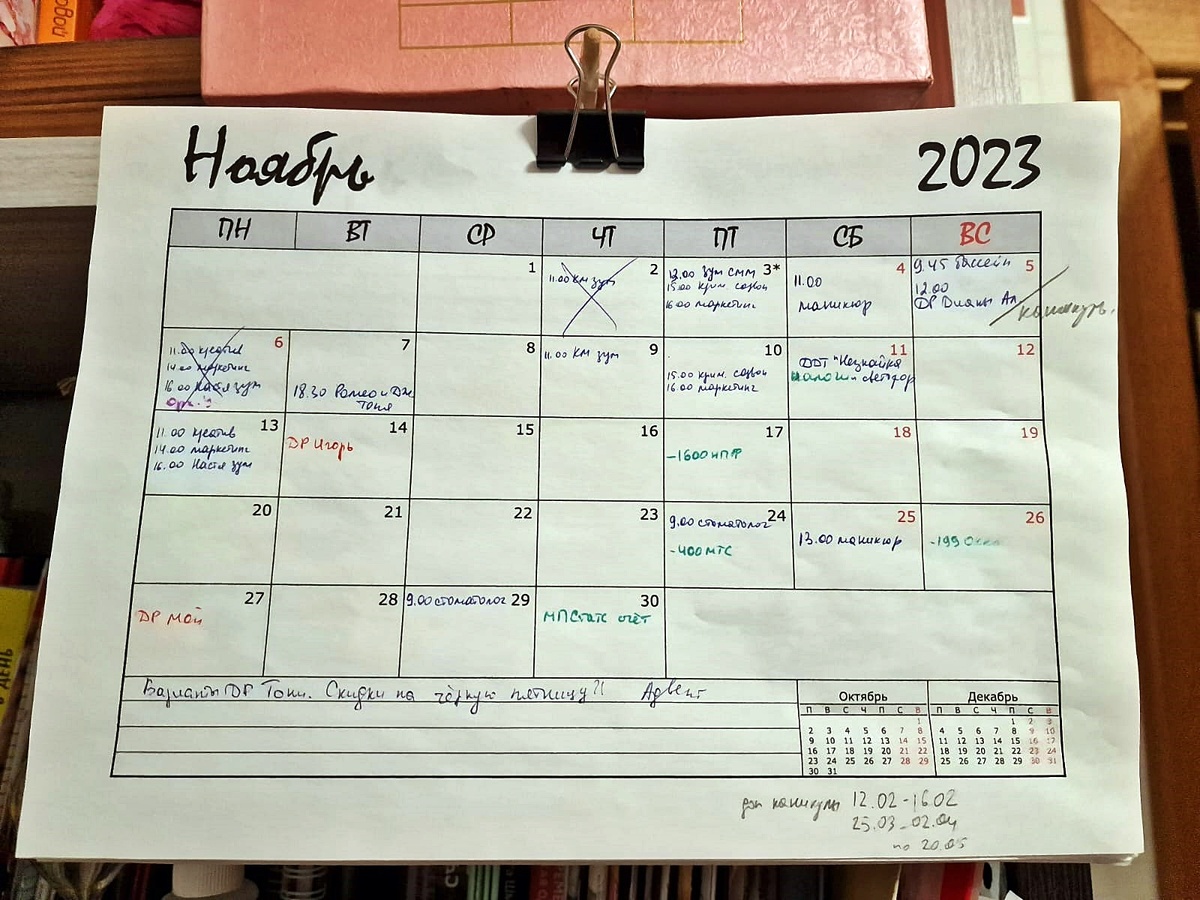 Ноябрь 2023
ПН ВТ СР ЧТ ПТ СБ ВС
1
2
11.00 КМ зум
3*
12.00 зум СММ
15.00 крим. созвон
16.00 маркетинг
4
11.00
маникюр
5
9.45 бассейн
12.00
ДР Дианы Ал.
каникулы.
6
11.00 креатив
14.00 маркетинг
16.00 Настя зум
7
18.30 Ромео и Дж
Тоня
8
9
11.00 КМ зум
10
15.00 крим. созвон
16.00 маркетинг
11
ДДТ "Незнайка
и светофор
12
13
11.00 креатив
14.00 маркетинг
16.00 Настя зум
14
ДР Игорь
15
16
17
-1600 НПФ
18
19
20
21
22
23
24
9.00 стоматолог
-400 МТС
25
13.00 маникюр
26
-199
27
ДР мой
28
29
9.00 стоматолог
30
МПСтатс отчёт
Варианты ДР Тони. Скидки на чёрную пятницу?! Адвент
Октябрь
П В С Ч П С В
1
2 3 4 5 6 7 8
9 10 11 12 13 14 15
16 17 18 19 20 21 22
23 24 25 26 27 28 29
30 31
Декабрь
П В С Ч П С В
1 2 3
4 5 6 7 8 9 10
11 12 13 14 15 16 17
18 19 20 21 22 23 24
25 26 27 28 29 30 31
доп каникулы 12.02-16.02
25.03-02.04
по 20.05